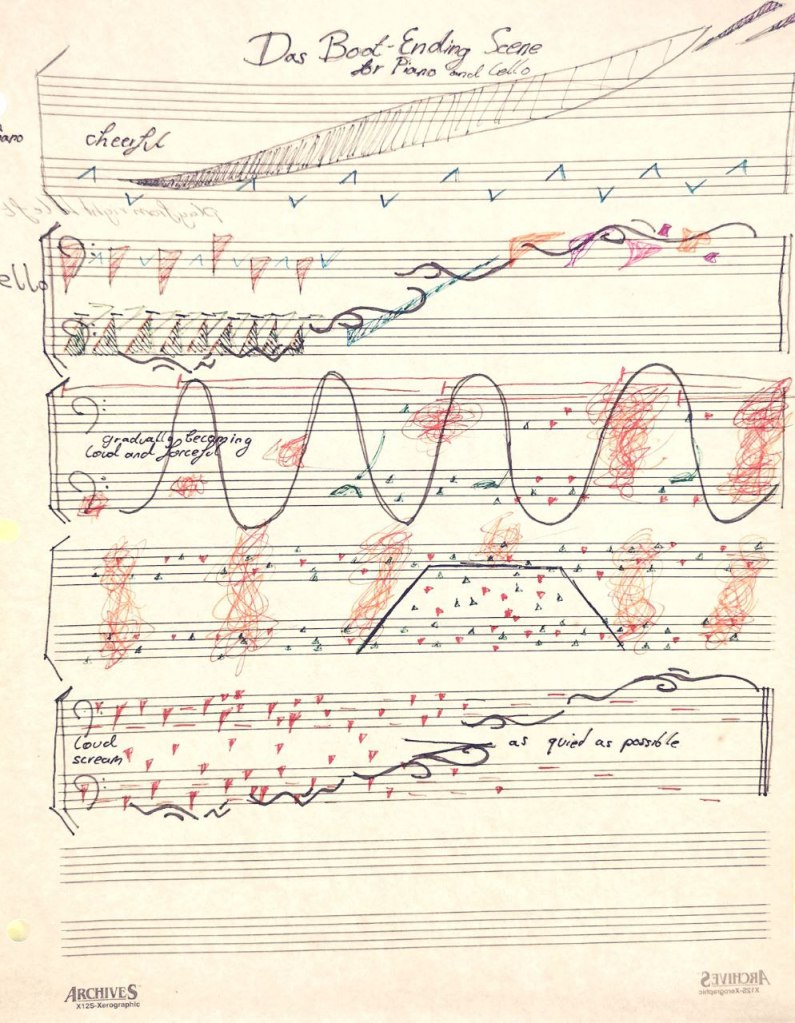 Das Boot-Ending Scene
for Piano and Cello
cheerful
gradually becoming
loud and forceful
loud
scream
as quied as possible
ARCHIVES
X125-Xerographic
ARCHIVES
X125-Xerographic